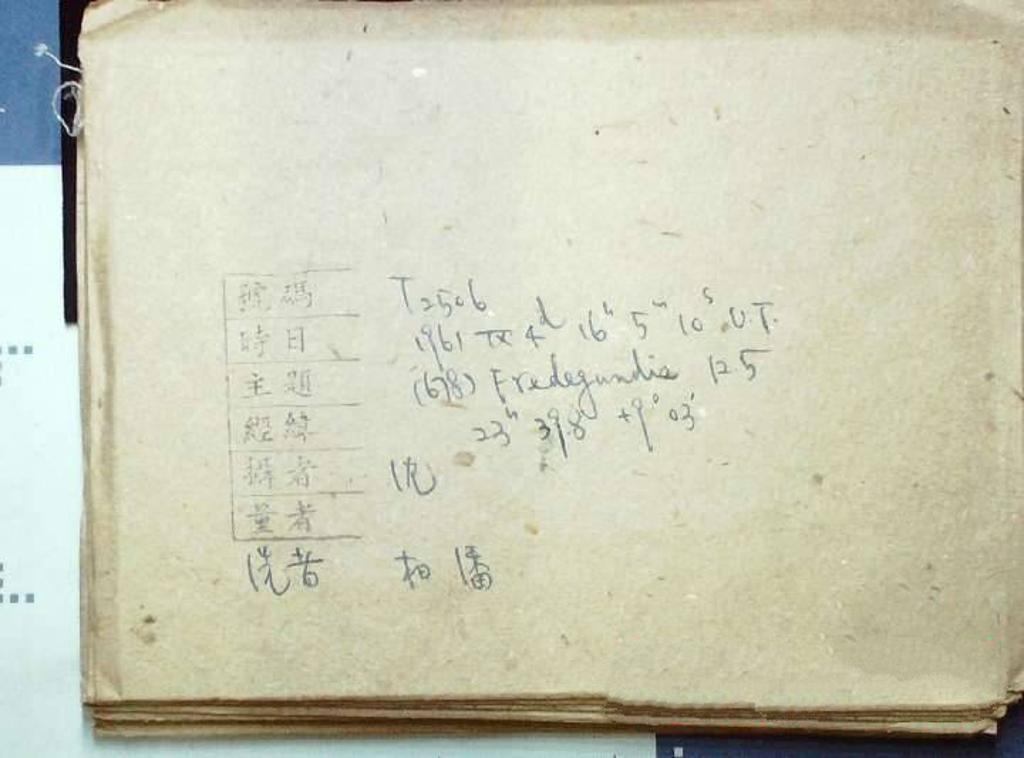 號碼 T2506
時日 1961 IX 4d 16h 5m 10s U.T.
主題 (678) Fredegundis 12.5
經緯 23h 39.8 +9° 03'
攝者 沈
量者
洗者 柏 潘